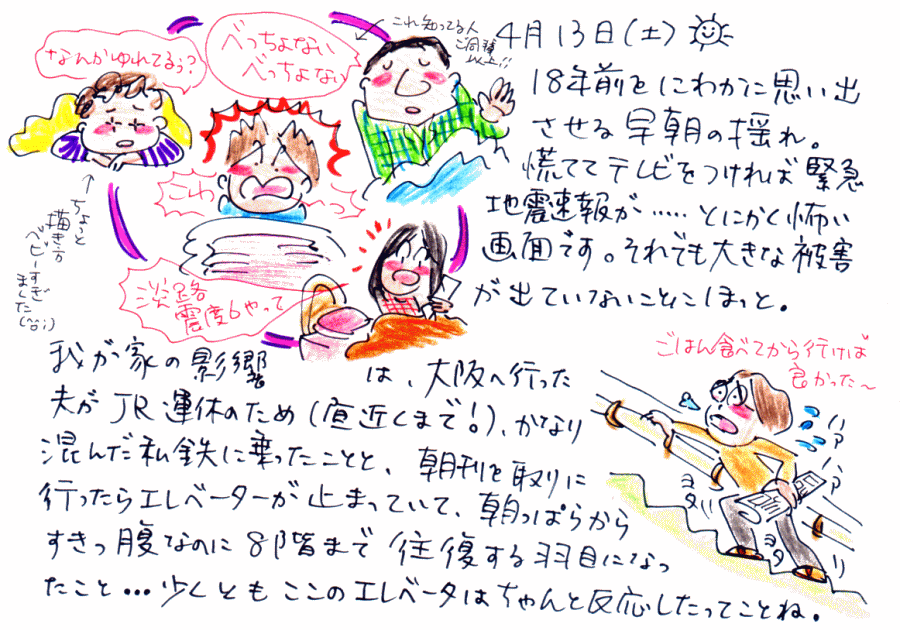 4月13日(土)
18年前をにわかに思い出
させる早朝の揺れ。
慌ててテレビをつければ緊急
地震速報が……とにかく怖い
画面です。それでも大きな被害
が出ていないことにほっと。
なんかゆれてるぅ?
べっちょない
べっちょない
これ知ってる人
ご同郷
以上!!
こわ
〜っ
ちょっと
描き方
ベビーすぎ
ました
(^^;)
淡路
震度6やって
我が家の影郷
は、大阪へ行った
夫がJR運休のため(直近くまで!)、かなり
混んだ私鉄に乗ったことと、朝刊を取りに
行ったらエレベーターが止まっていて、朝っぱらから
すきっ腹なのに8階まで往復する羽目になっ
たこと…少くともここのエレベータはちゃんと反応したってことね。
ごはん食べてから行けば
良かった〜
ハァ
ハァ
ヨタ
ヨタ